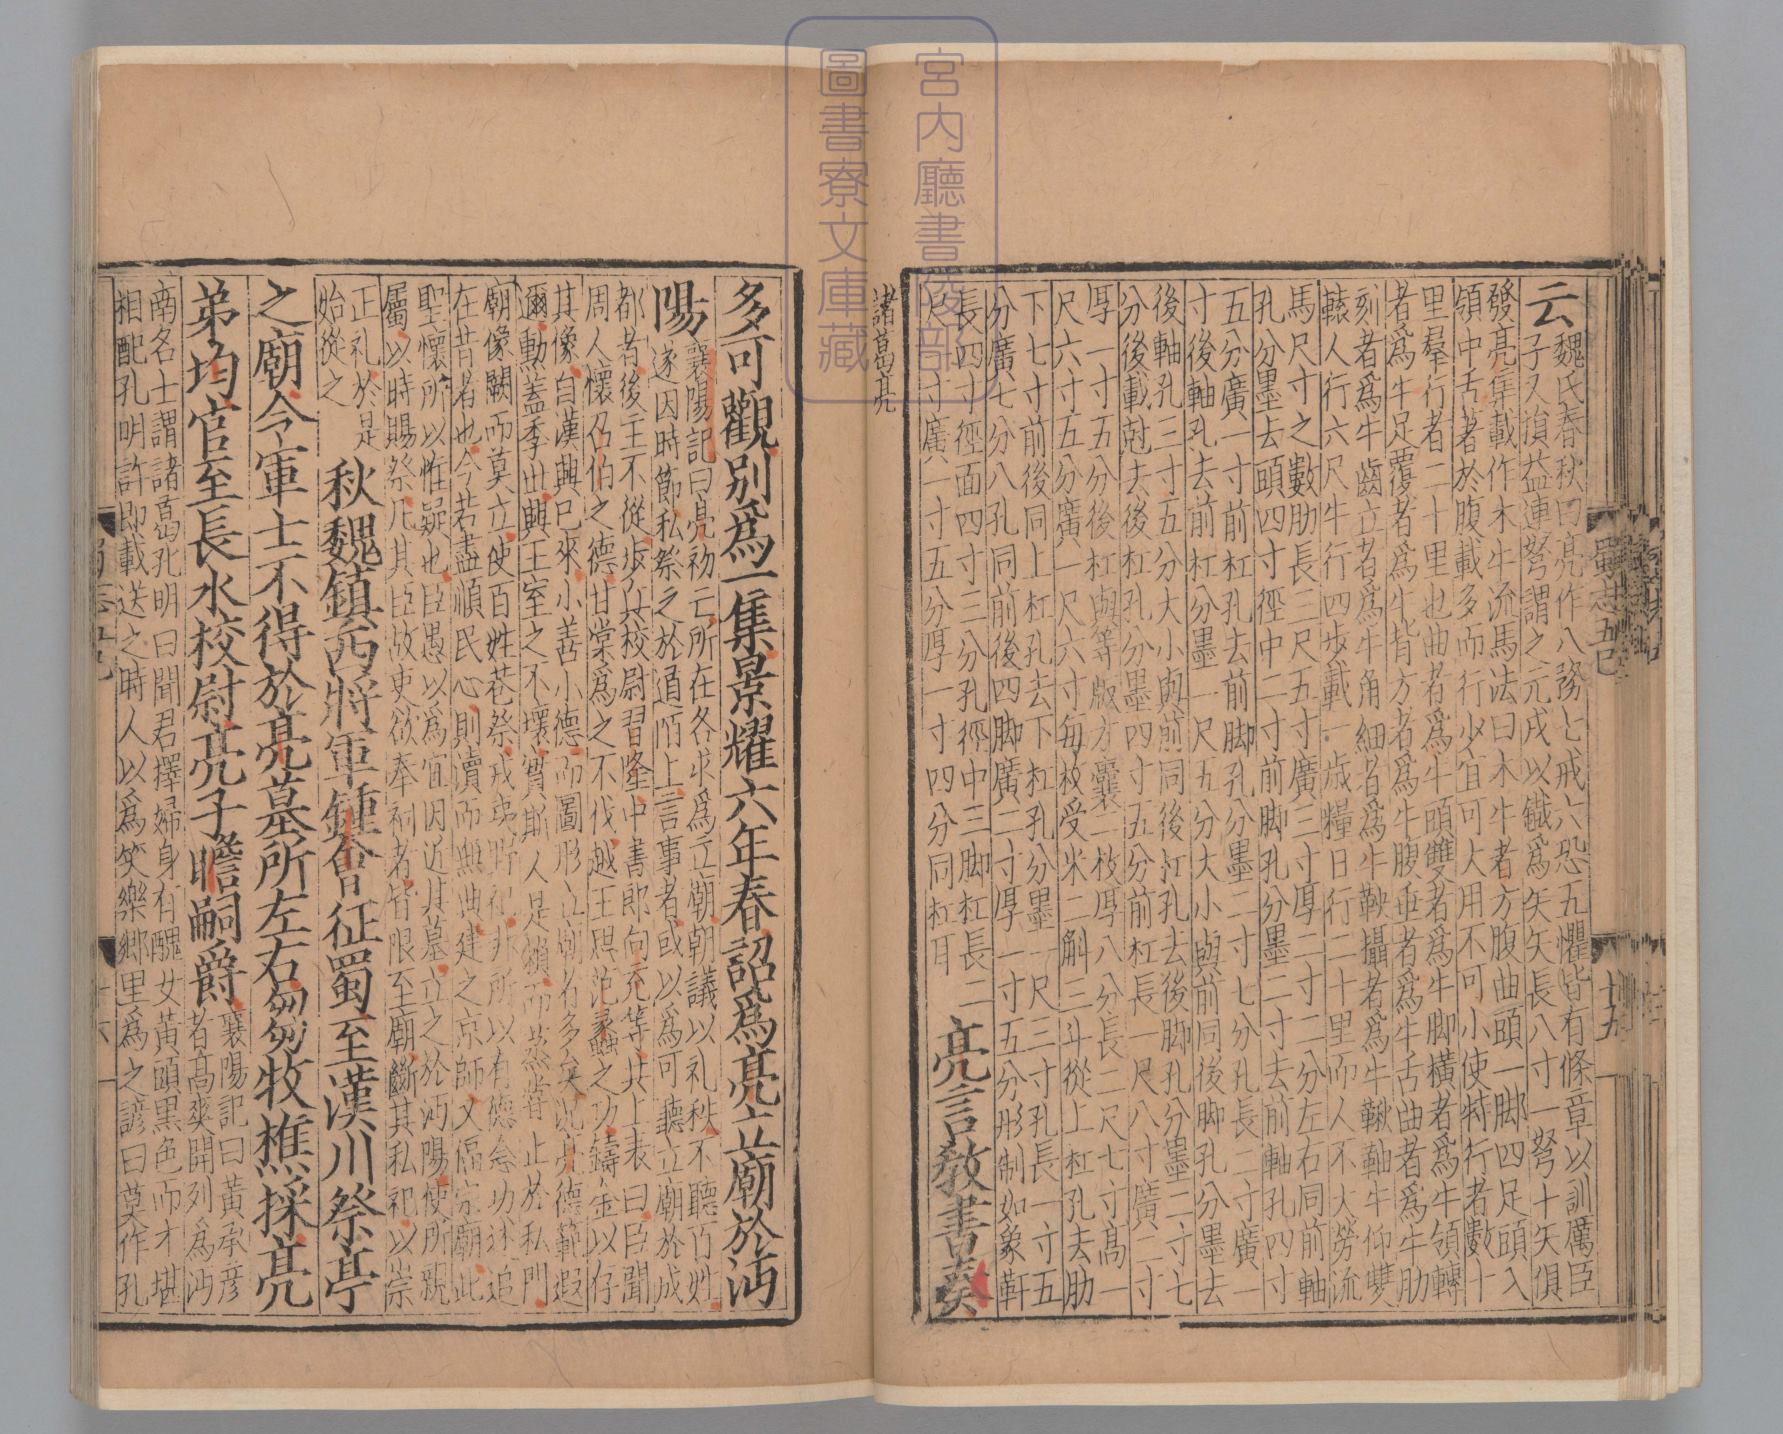 蜀志五
十五
云
魏氏春秋曰亮作八務七戒六恐五懼皆有條章以訓厲臣
子又損益連弩謂之元戎以鐵爲矢矢長八寸一弩十矢俱
發亮集載作木牛流馬法曰木牛者方腹曲頭一脚四足頭入
領中舌著於腹載多而行少宜可大用不可小使特行者數十
里羣行者二十里也曲者爲牛頭雙者爲牛脚橫者爲牛領轉
者爲牛足覆者爲牛背方者爲牛腹垂者爲牛舌曲者爲牛肋
刻者爲牛齒立者爲牛角細者爲牛鞅攝者爲牛鞦軸牛仰雙
轅人行六尺牛行四步載一歲糧日行二十里而人不大勞流
馬尺寸之數肋長三尺五寸廣三寸厚二寸二分左右同前軸
孔分墨去頭四寸徑中二寸前脚孔分墨二寸去前軸孔四寸
五分廣一寸前杠孔去前脚孔分墨二寸七分孔長二寸廣一
寸後軸孔去前杠分墨一尺五分大小與前同後脚孔分墨去
後軸孔三寸五分大小與前同後杠孔去後脚孔分墨二寸七
分後載尅去後杠孔分墨四寸五分前杠長一尺八寸廣二寸
厚一寸五分後杠與等版方囊二枚厚八分長二尺七寸高一
尺六寸五分廣一尺六寸每枚受米二斛三斗從上杠孔去肋
下七寸前後同上杠孔去下杠孔分墨一尺三寸孔長一寸五
分廣七分八孔同前後四脚廣二寸厚一寸五分形制如象軒
長四寸徑面四寸三分孔徑中三脚杠長二
尺一寸廣一寸五分厚一寸四分同杠耳
亮言教書奏
諸葛亮
宮内廳書陵部
圖書寮文庫藏
多可觀別爲一集景耀六年春詔爲亮立廟於沔
陽
襄陽記曰亮初亡所在各求爲立廟朝議以礼秩不聽百姓
遂因時節私祭之於道陌上言事者或以爲可聽立廟於成
都者後主不從步兵校尉習隆中書郎向充等共上表曰臣聞
周人懷召伯之德甘棠爲之不伐越王思范蠡之功鑄金以存
其像自漢興已來小善小德而圖形立廟者多矣況亮德範遐
邇勳蓋季世興王室之不壞實斯人是賴而蒸嘗止於私門
廟像闕而莫立使百姓巷祭戎夷野祀非所以存德念功述追
在昔者也今若盡順民心則瀆而無典建之京師又偪宗廟此
聖懷所以惟疑也臣愚以爲宜因近其墓立之於沔陽使所親
屬以時賜祭凡其臣故吏欲奉祠者皆限至廟斷其私祀以崇
正礼於是
始從之
秋魏鎮西將軍鍾會征蜀至漢川祭亭
之廟令軍士不得於亮墓所左右芻牧樵採亮
弟均官至長水校尉亮子瞻嗣爵
襄陽記曰黃承彦
者高爽開列爲沔
南名士謂諸葛孔明曰聞君擇婦身有醜女黃頭黑色而才堪
相配孔明許即載送之時人以爲笑樂鄉里爲之諺曰莫作孔